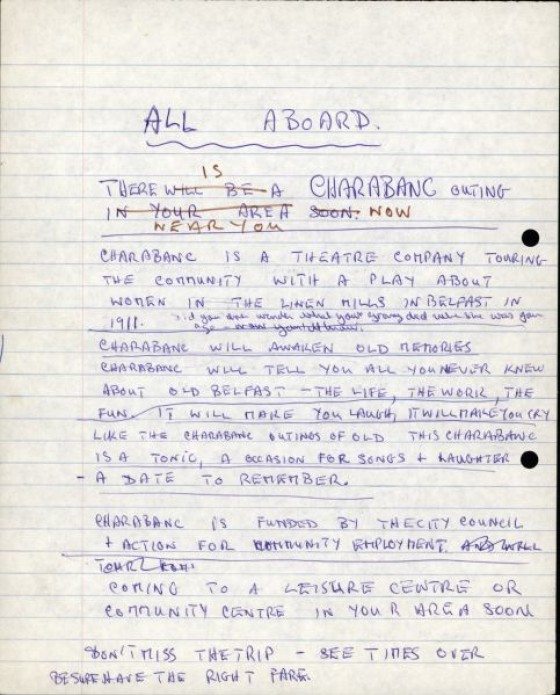 ALL ABOARD.
IS
THERE WILL BE A CHARABANC OUTING
IN YOUR AREA SOON. NOW
NEAR YOU
CHARABANC IS A THEATRE COMPANY TOURING
THE COMMUNITY WITH A PLAY ABOUT
WOMEN IN THE LINEN MILLS IN BELFAST IN
1911. did you ever wonder what your granny did when she was your
age - now you'll know.
CHARABANC WILL AWAKEN OLD MEMORIES
CHARABANC WILL TELL YOU ALL YOU NEVER KNEW
ABOUT OLD BELFAST - THE LIFE, THE WORK, THE
FUN. IT WILL MAKE YOU LAUGH, IT WILL MAKE YOU CRY
LIKE THE CHARABANC OUTINGS OF OLD THIS CHARABANC
IS A TONIC, A OCCASION FOR SONGS + LAUGHTER
- A DATE TO REMEMBER.
CHARABANC IS FUNDED BY THE CITY COUNCIL
+ ACTION FOR COMMUNITY EMPLOYMENT. AND WILL
COMING TO A LEISURE CENTRE OR
COMMUNITY CENTRE IN YOUR AREA SOON
DON'T MISS THE TRIP - SEE TIMES OVER
BE SURE HAVE THE RIGHT FARE.